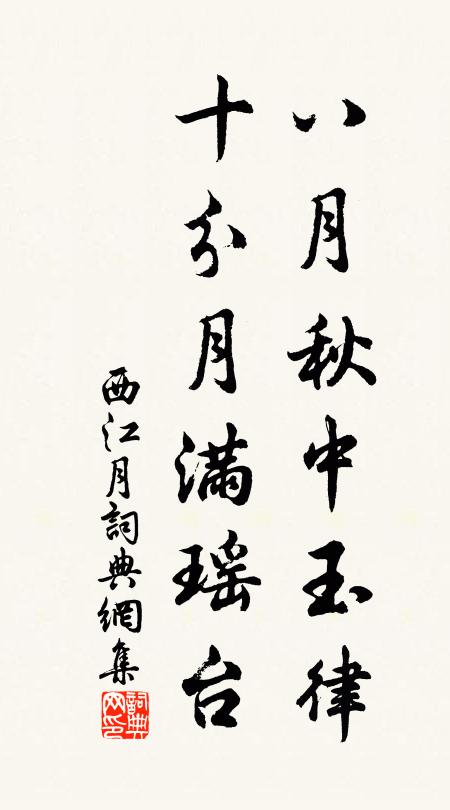 八月秋中玉律
十分月满瑶台
西江月詞典網集
詞典網印